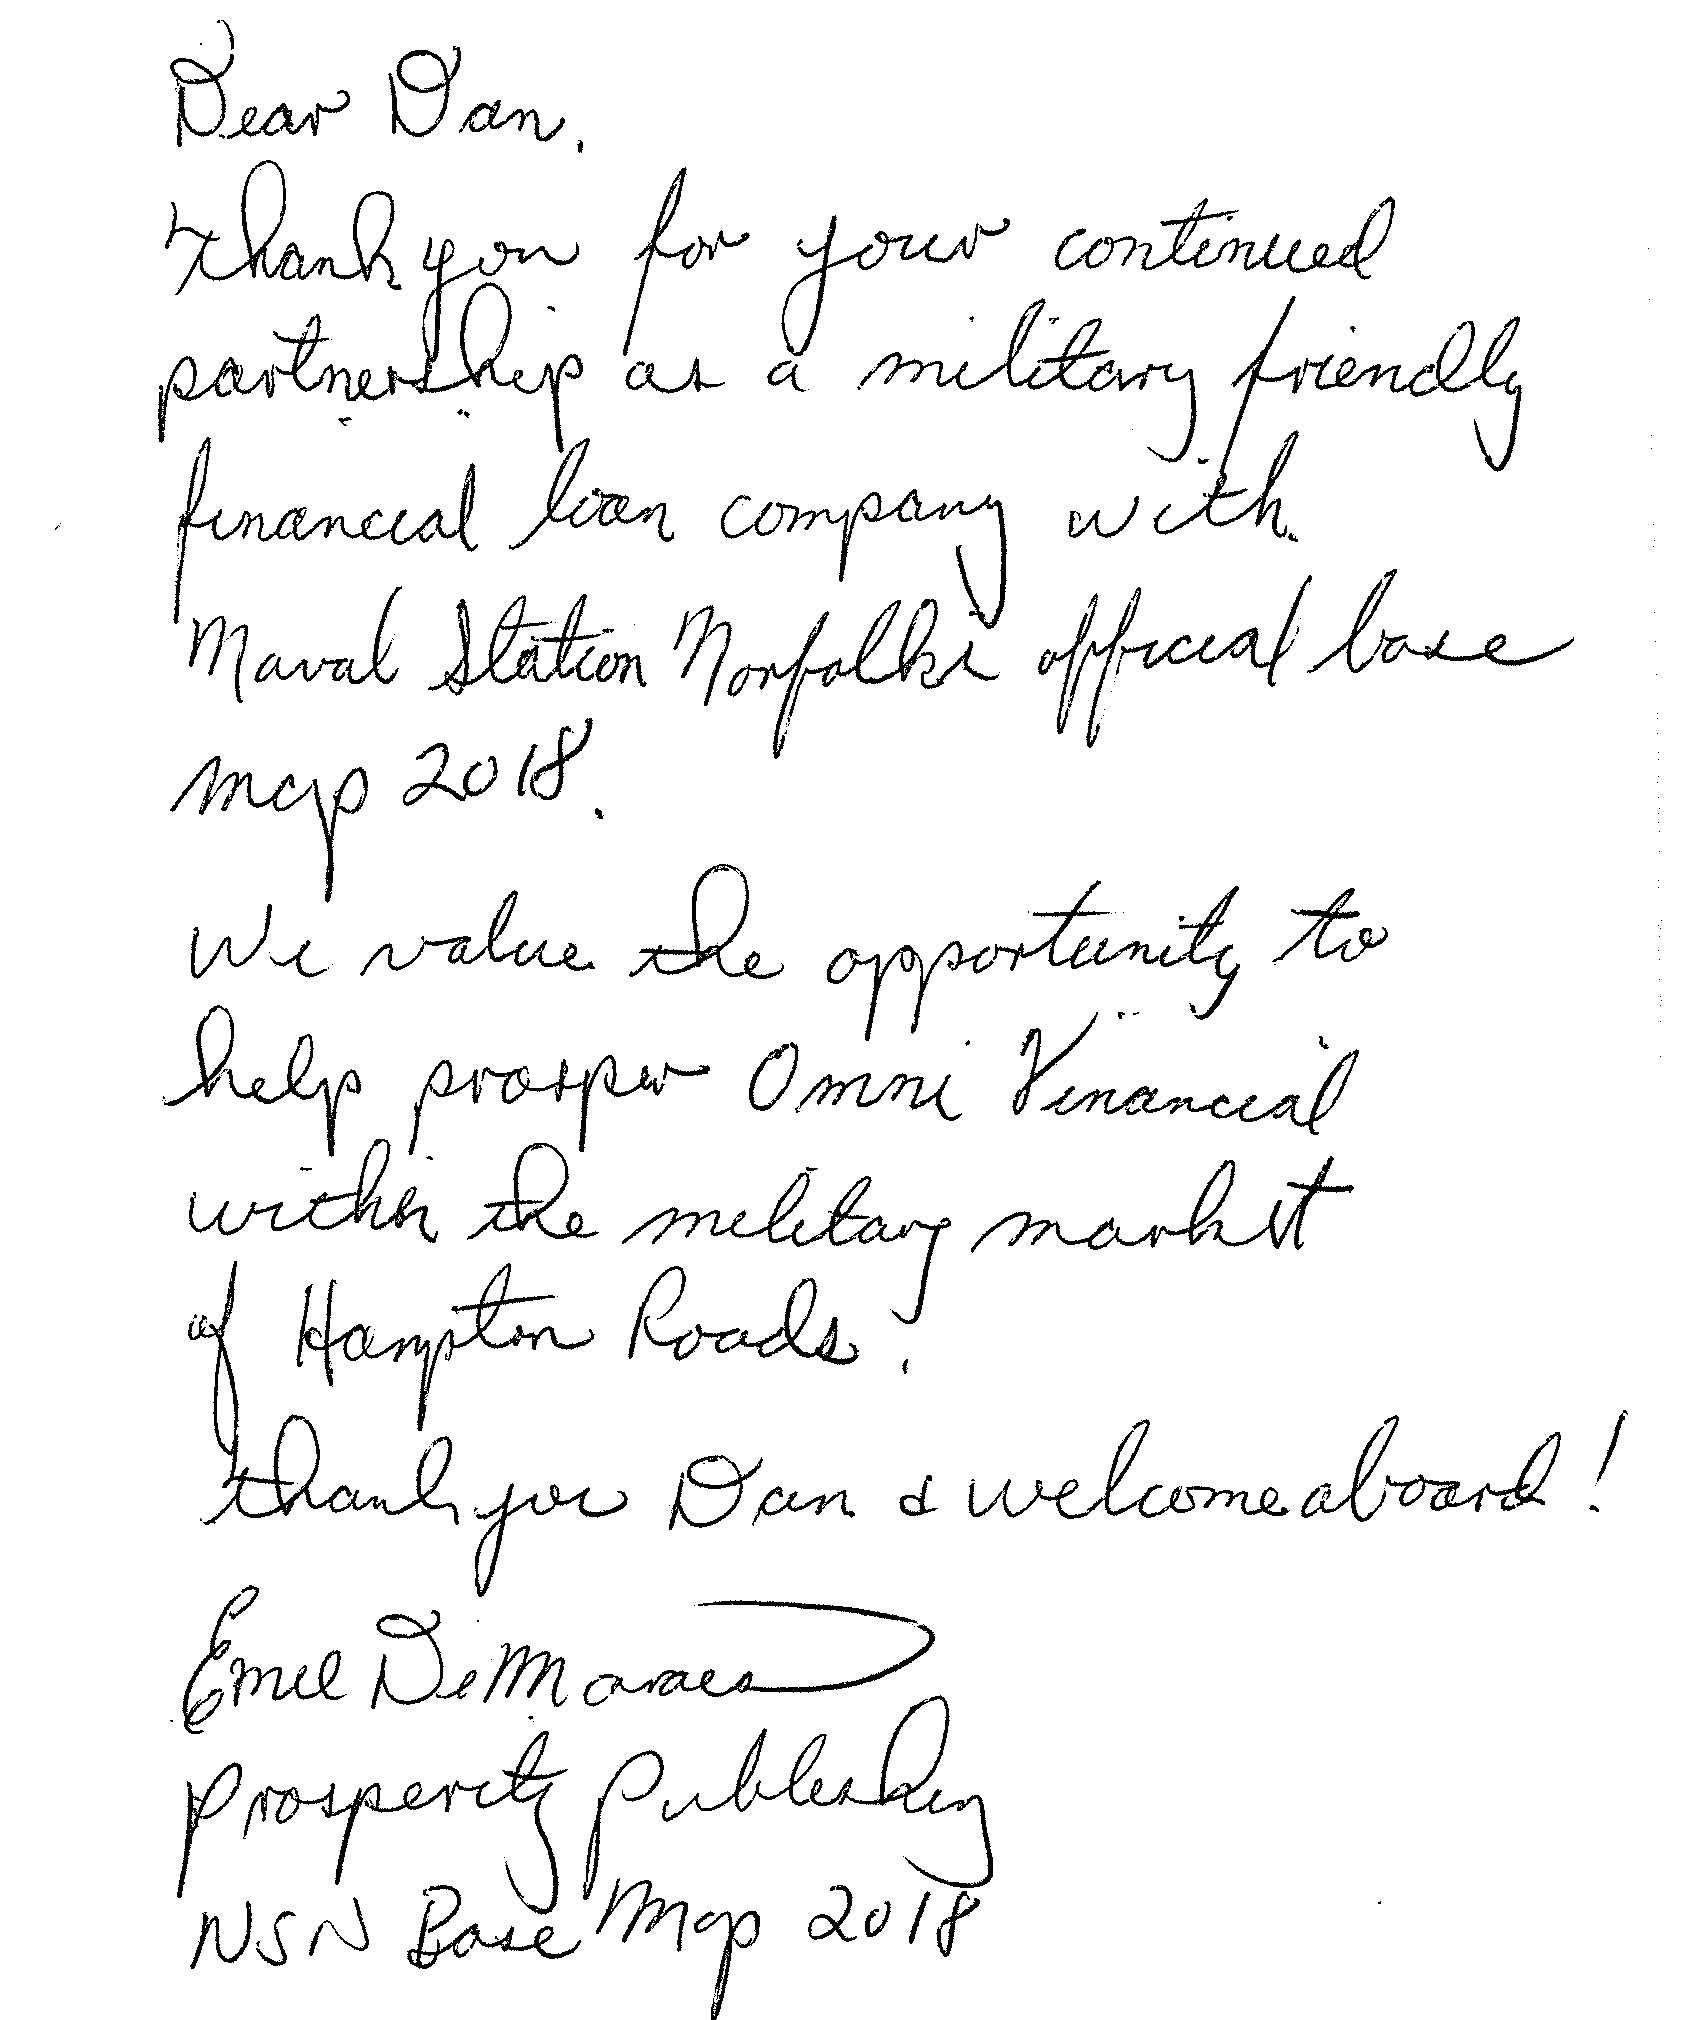 Dear Dan,
Thank you for your continued
partnership as a military friendly
financial loan company with
Naval Station Norfolk's official base
map 2018.
We value the opportunity to
help prosper Omni Financial
within the military market
of Hampton Roads.
Thank you Dan & welcome aboard!
Emil DeMaraes
Prosperity Publishing
NSN Base Map 2018